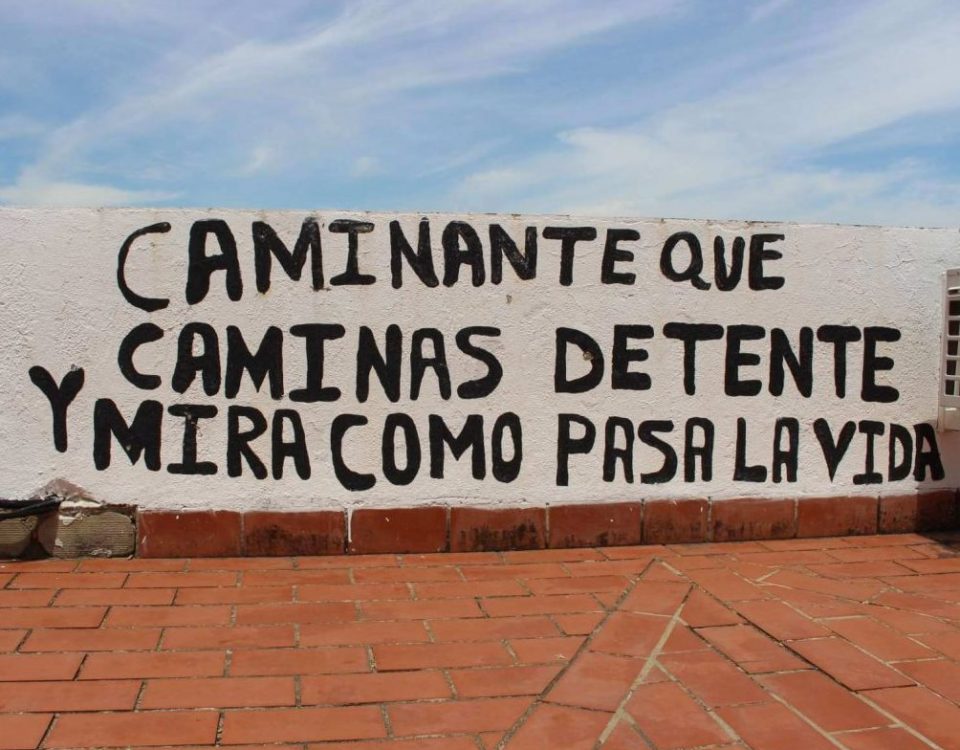 CAMINANTE QUE
CAMINAS DETENTE
Y MIRA COMO PASA LA VIDA